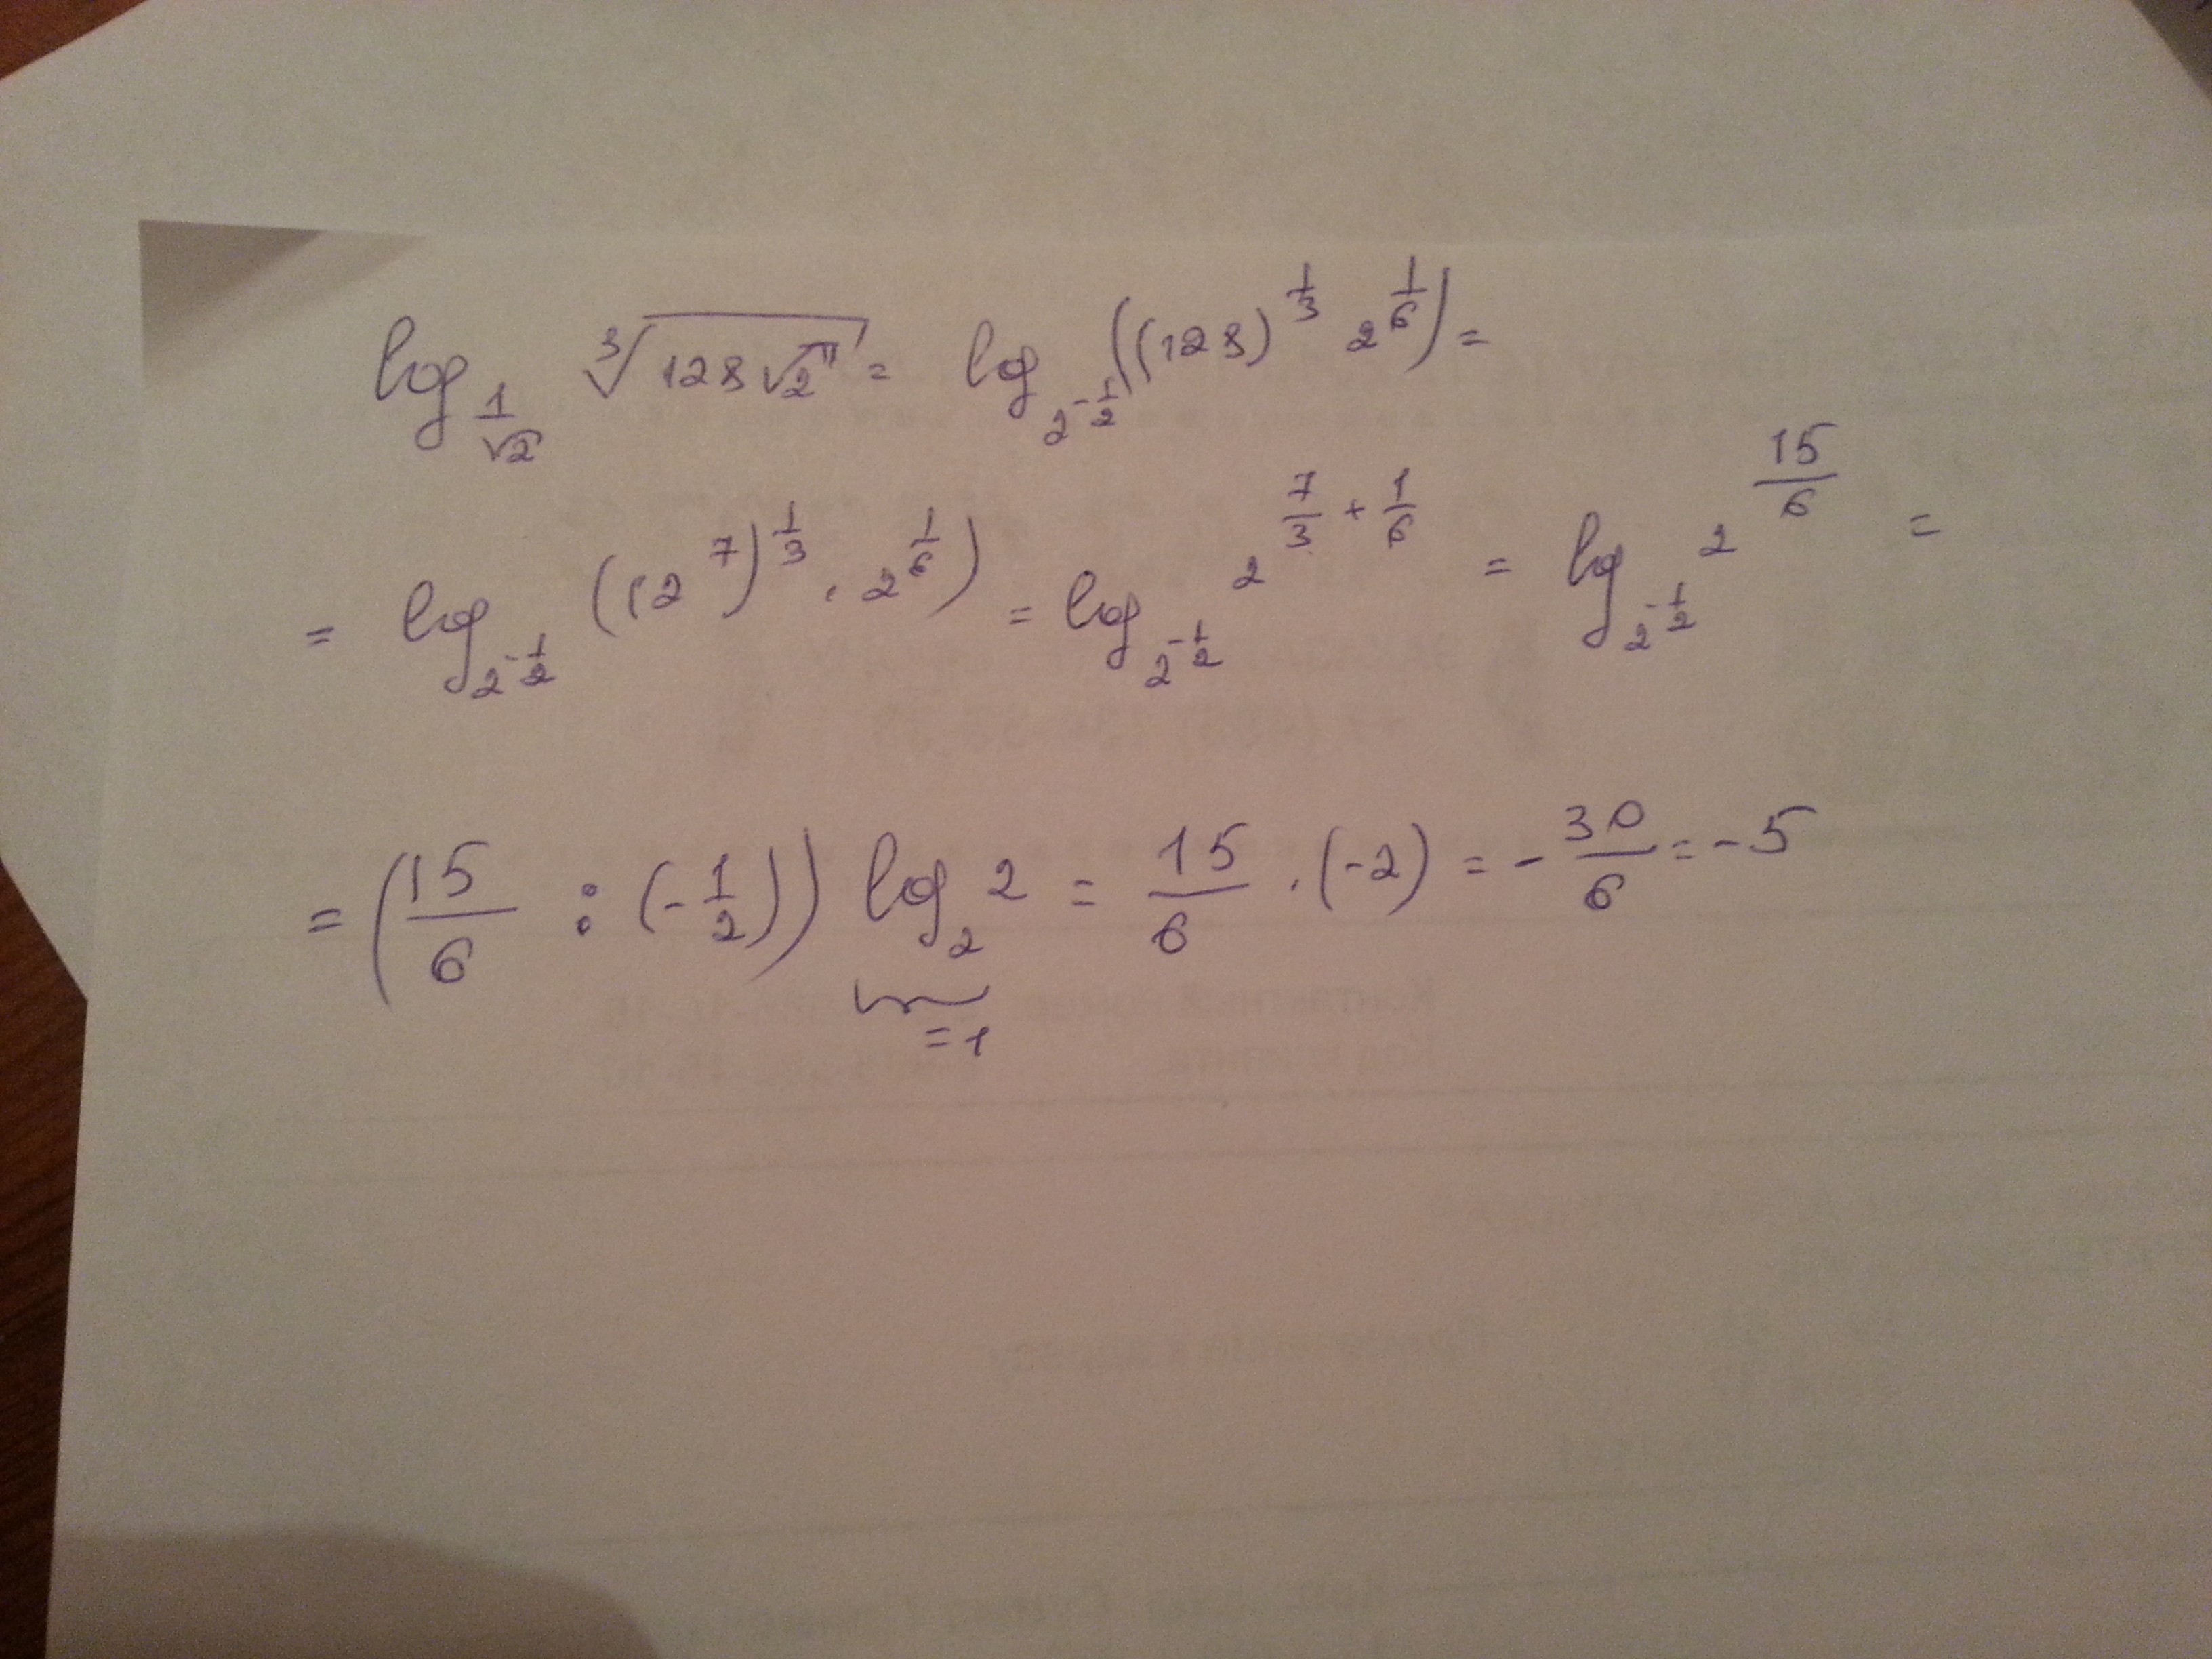 log_{1/√2} ∛(128√2) = log_{2^{-1/2}} ((128)^{1/3} 2^{1/6}) =
= log_{2^{-1/2}} ((2^7)^{1/3} · 2^{1/6}) = log_{2^{-1/2}} 2^{7/3 + 1/6} = log_{2^{-1/2}} 2^{15/6} =
= (15/6 : (-1/2)) log_2 2 = 15/6 · (-2) = -30/6 = -5
= 1